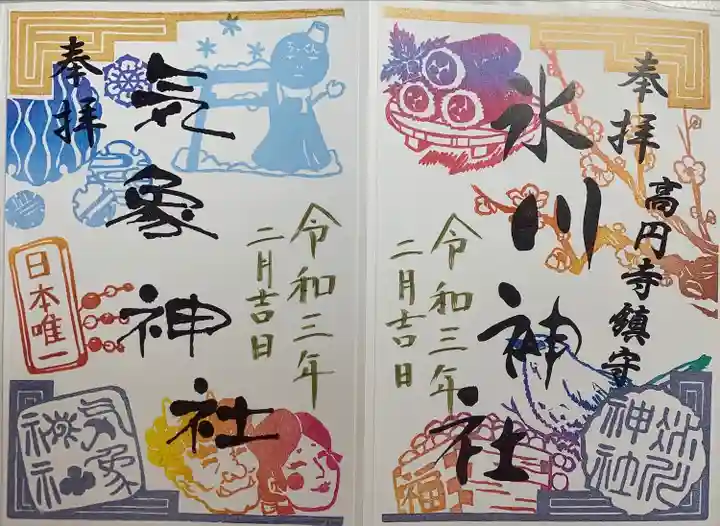 奉拝
気象神社
令和三年
二月吉日
日本唯一
気象神社
奉拝
高円寺鎮守
氷川神社
令和三年
二月吉日
福
氷川神社